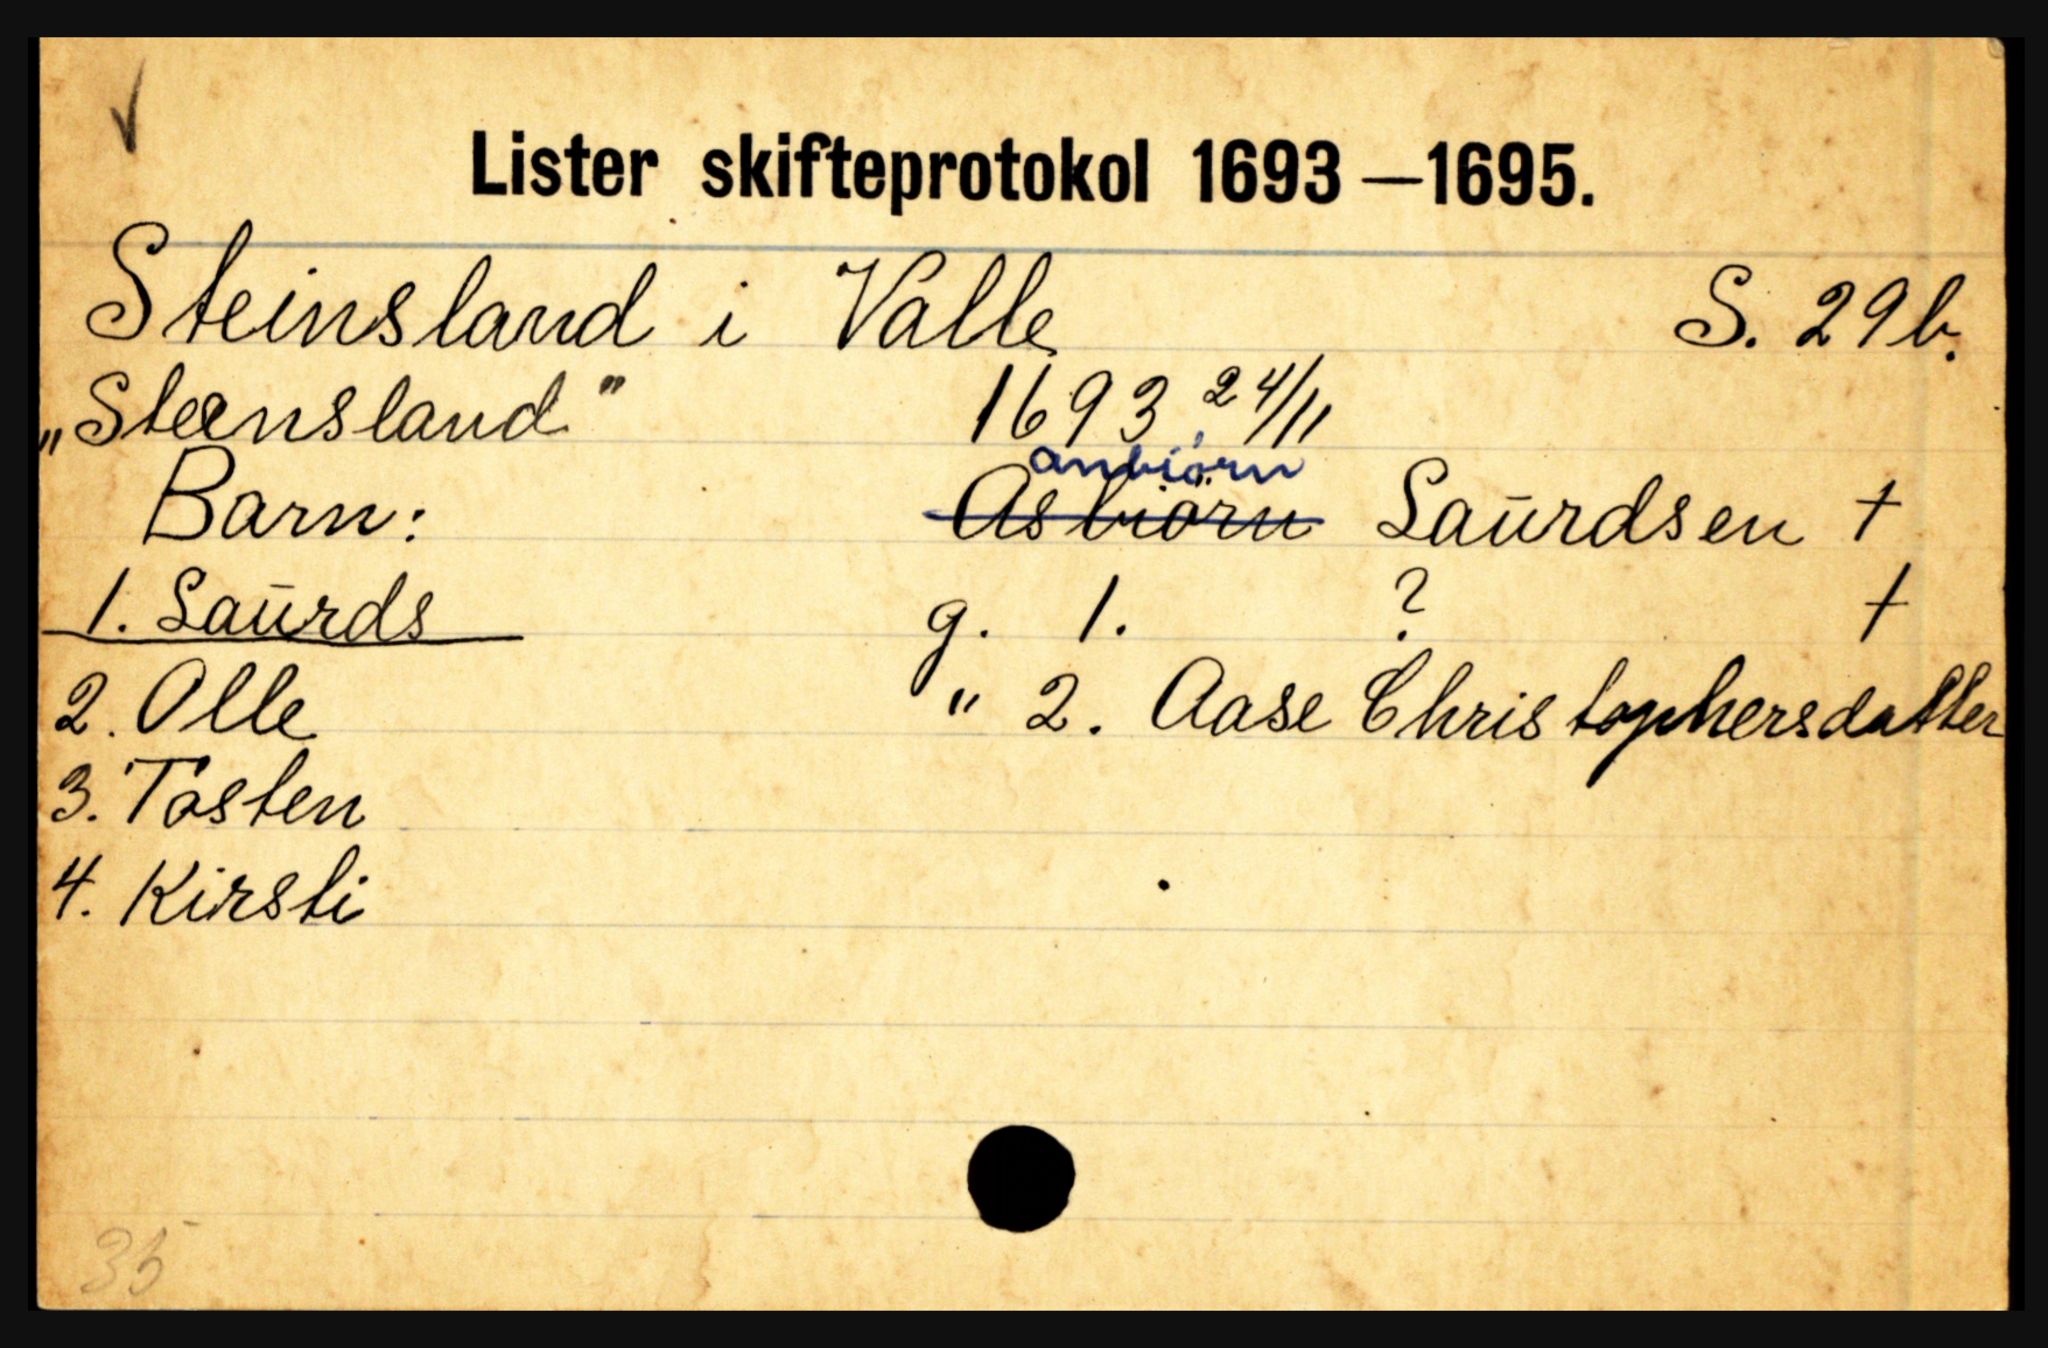 ✓
Lister skifteprotokol 1693—1695.
Steinsland i Valle S. 29 b.
„Steensland" 1693 24/11
anbiørn
Barn: ~~Asbiørn~~ Laūrdsen †
1. Laūrds g. 1. ? †
2. Olle " 2. Aase Christophersdatter
3. Tosten
4. Kirsti
35